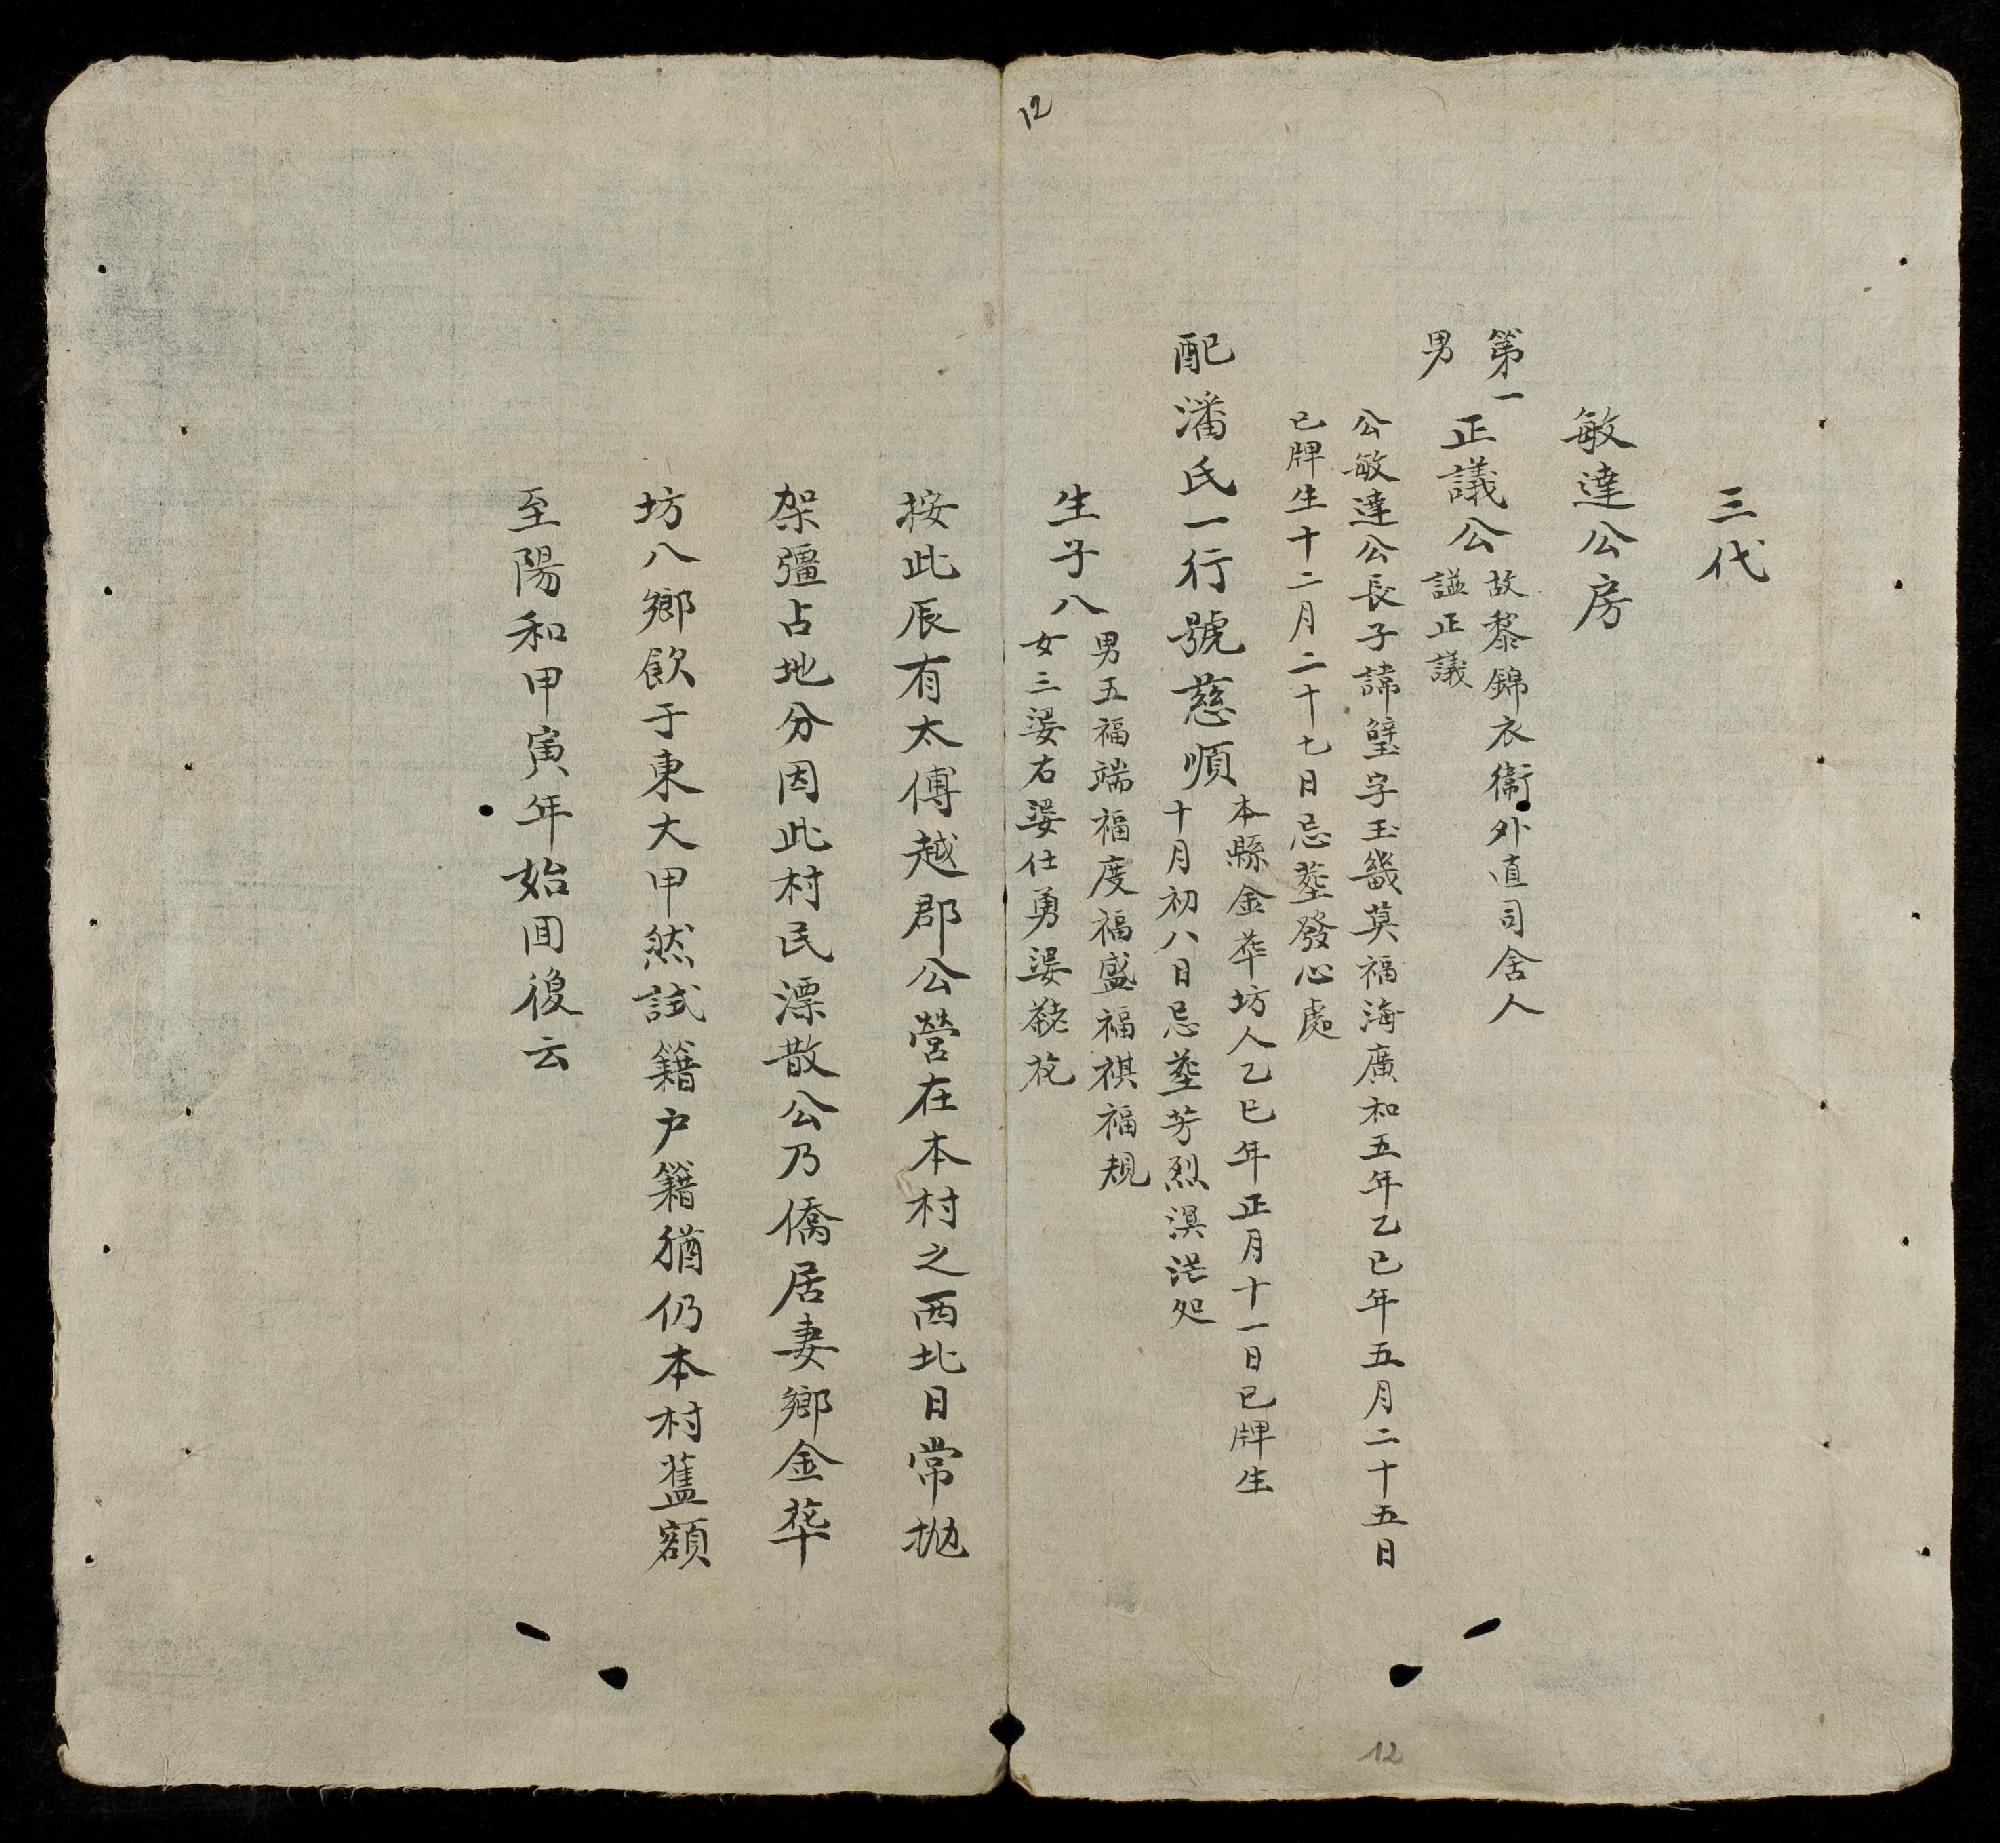 12
三代
敏達公房
第一
男
正議公
故黎錦衣衛外直司舍人
諡正議
公敏達公長子諱璧字玉畿莫福海廣和五年乙巳年五月二十五日
巳牌生十二月二十七日忌塟發心處
配潘氏一行號慈順
本縣金華坊人乙巳年正月十一日巳牌生
十月初八日忌塟芳烈溟茫処
生子八
男五福端福度福盛福祺福規
女三㛪右㛪仕勇㛪
按此辰有太傅越郡公營在本村之西北日常拋
架彊占地分因此村民漂散公乃僑居妻鄉金華
坊八鄉飲于東大甲然試籍户籍猶仍本村舊額
至陽和甲寅年始囬復云
12